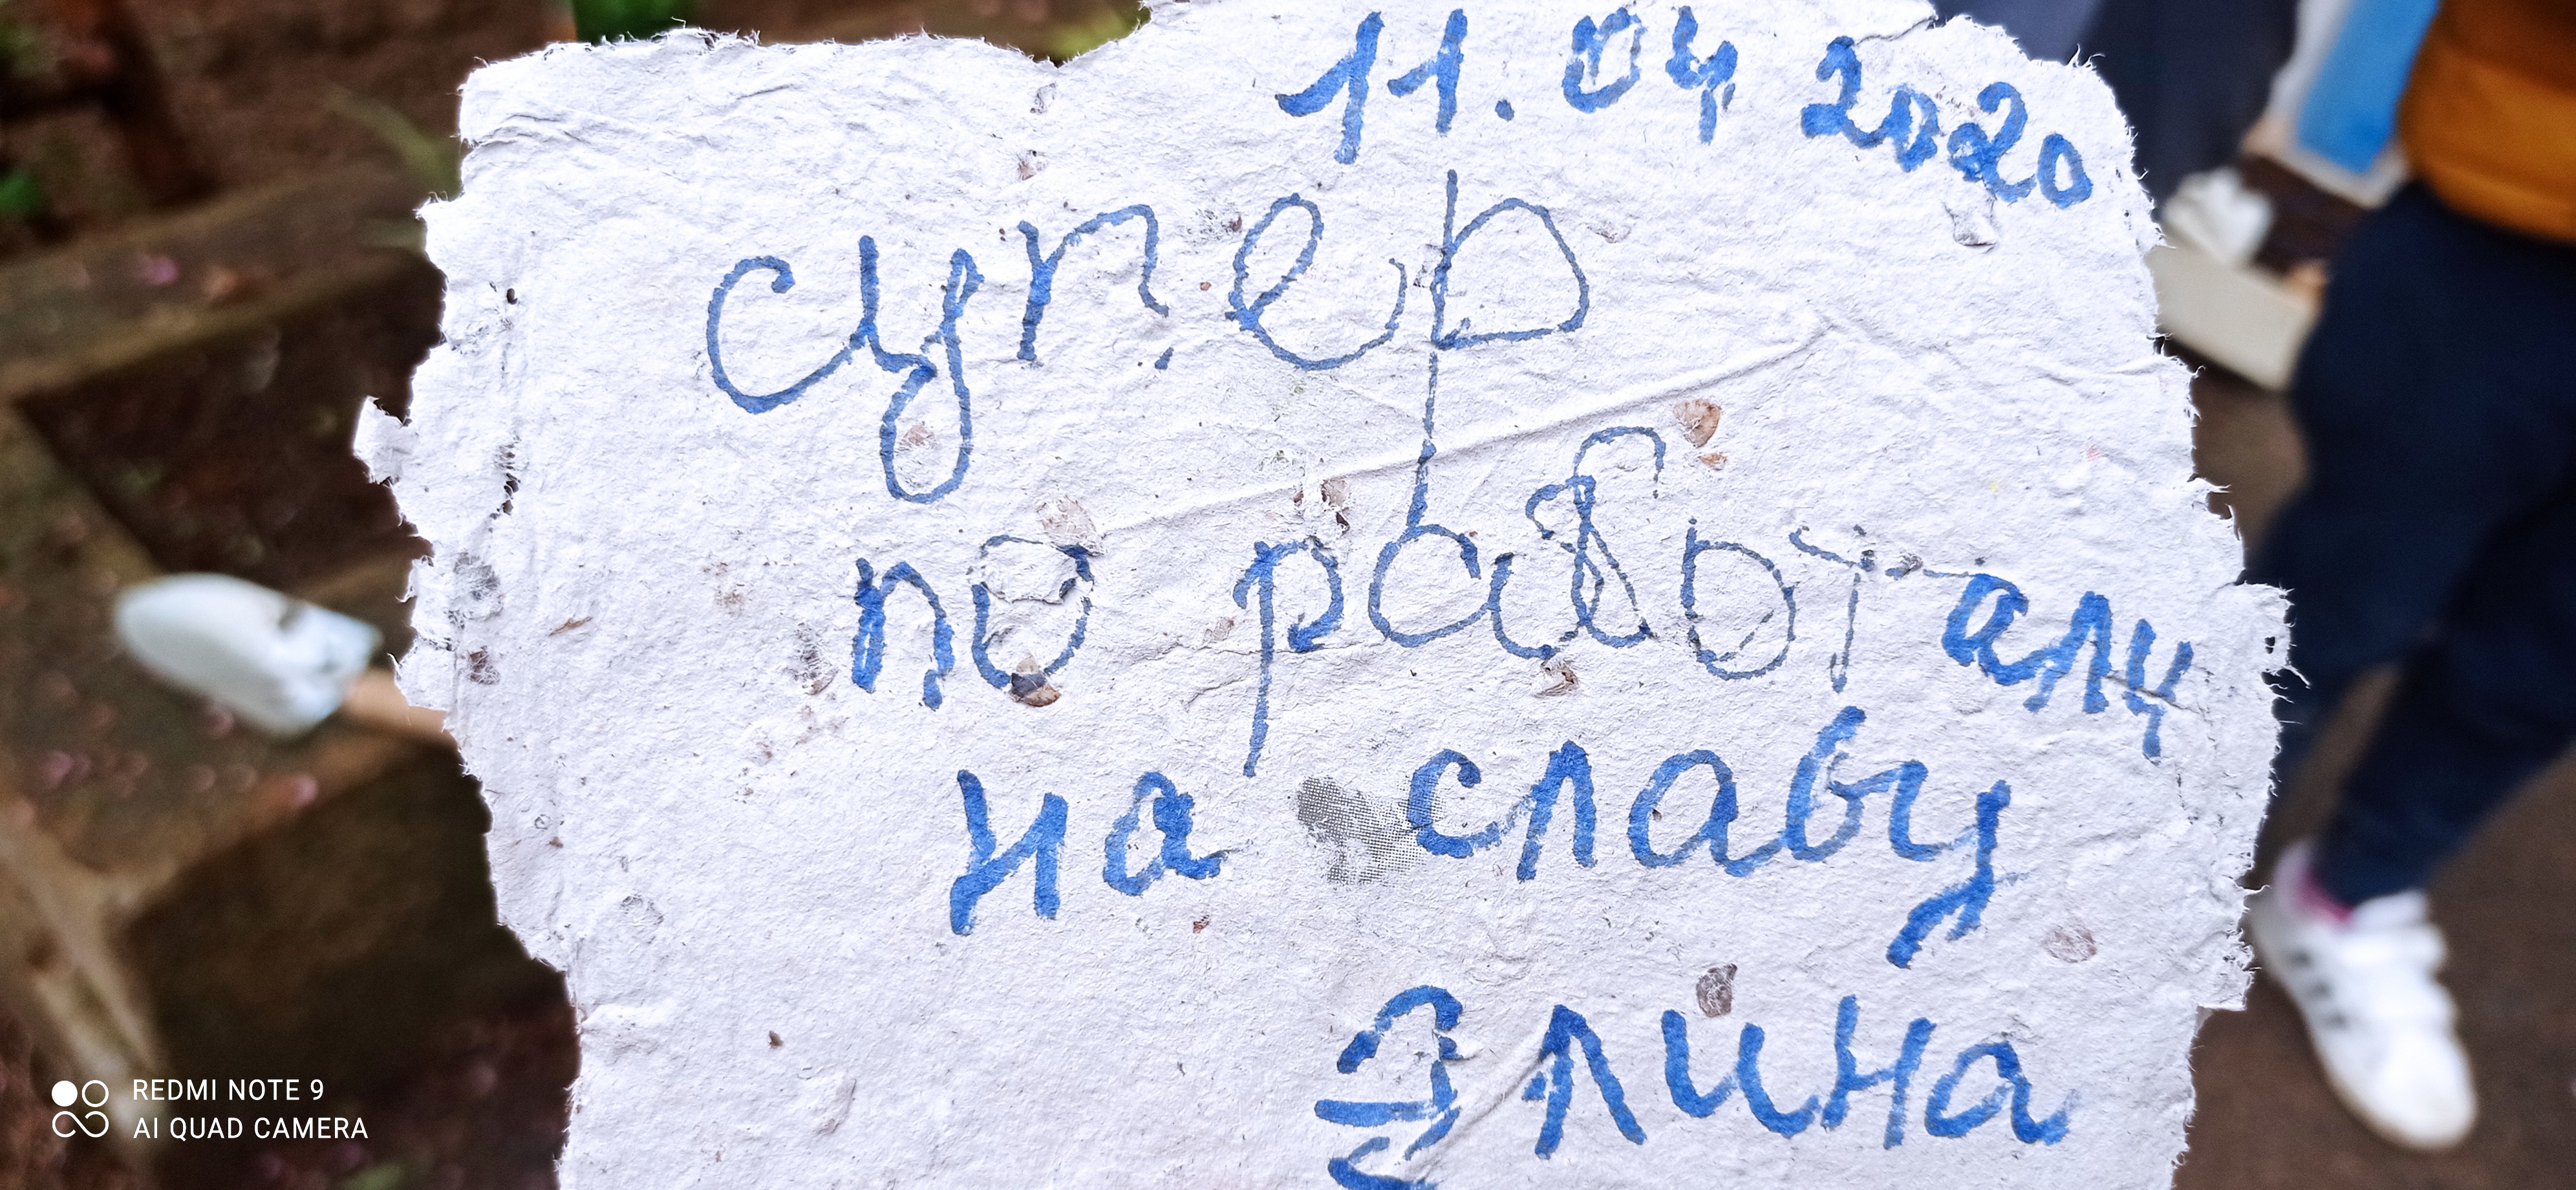 11.04 2020
супер
по работали
на славу
Элина
REDMI NOTE 9
AI QUAD CAMERA